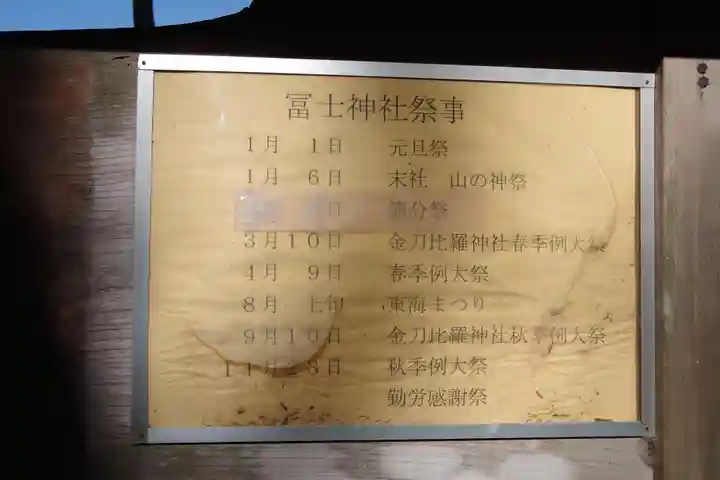 冨士神社祭事
１月　１日　元旦祭
１月　６日　末社　山の神祭
日　節分祭
３月１０日　金刀比羅神社春季例大祭
４月　９日　春季例大祭
８月　上旬　東海まつり
９月１０日　金刀比羅神社秋季例大祭
１１月２３日　秋季例大祭
勤労感謝祭